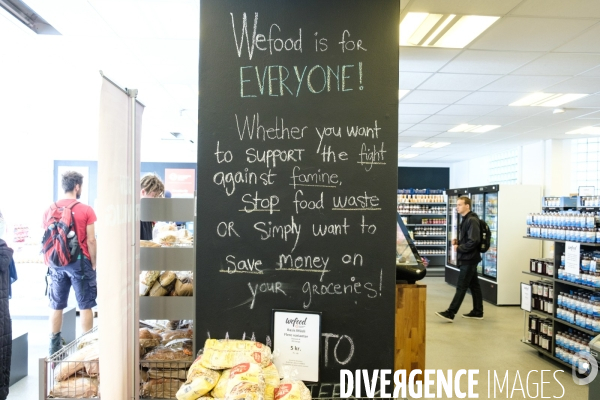 Wefood is for
EVERYONE!
Whether you want
to support the fight
against famine,
stop food waste
OR simply want to
save money on
your groceries!
WANT TO
wefood
5 kr.
DIVERGENCE IMAGES